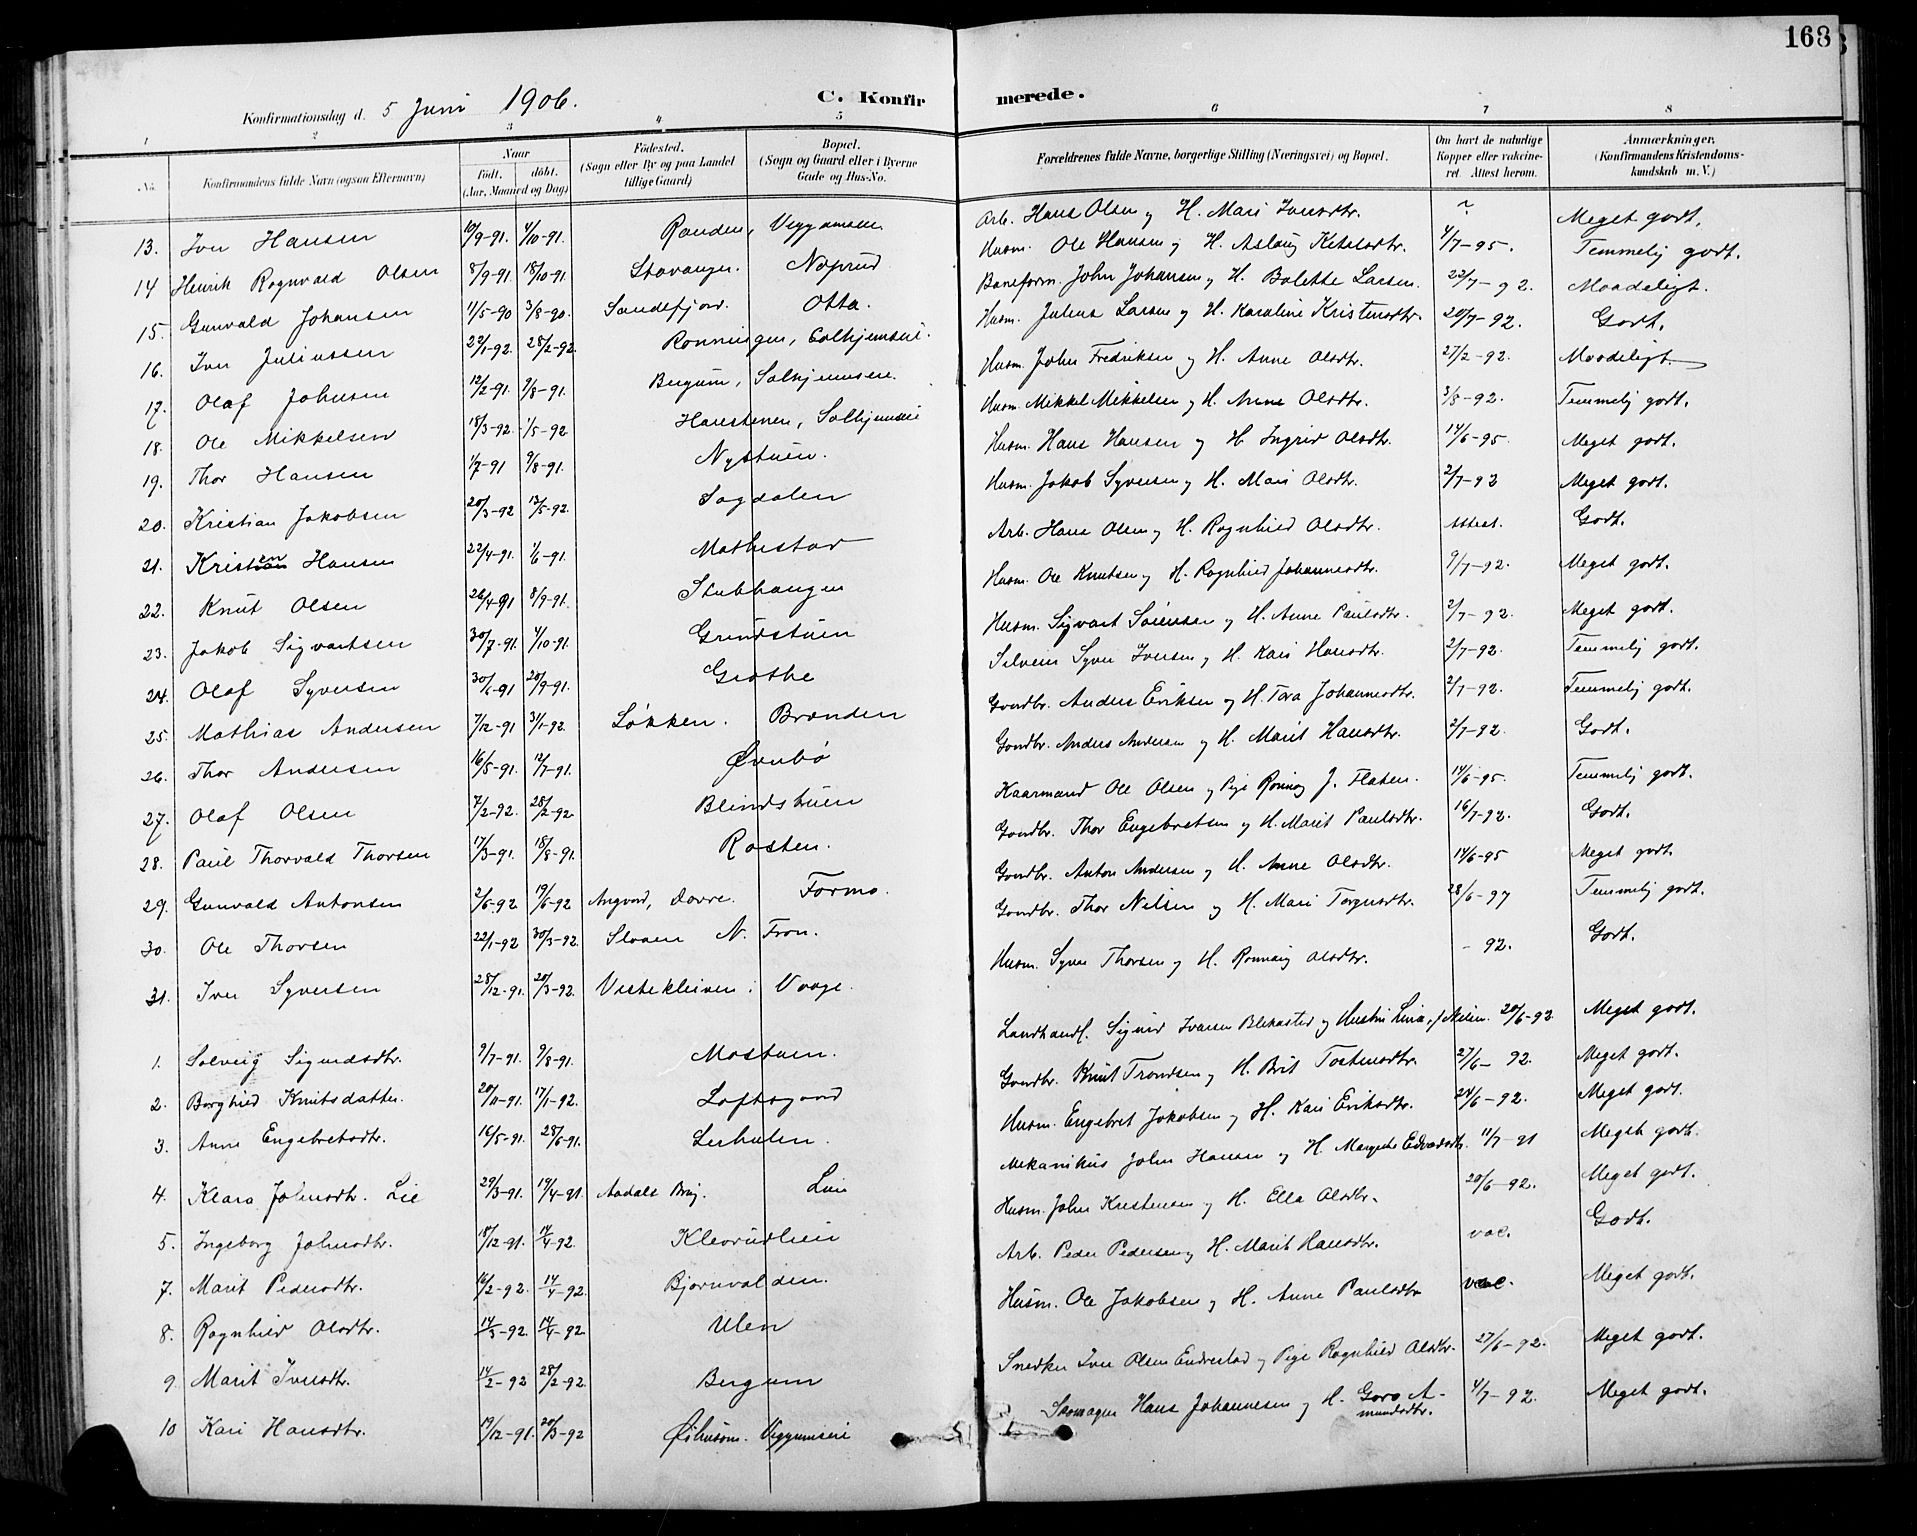 168
Konfirmationsdag d. 5 Juni 1906. C. Konfirmerede.
1 2 3 4 5 6 7 8
No. Konfirmandens fulde Navn (ogsaa Efternavn) Naar født. døbt. (Aar, Maaned og Dag) Fødested. (Sogn eller By og paa Landet tillige Gaard) Bopæl. (Sogn og Gaard eller i Byerne Gade og Hus-No. Forældrenes fulde Navne, borgerlige Stilling (Næringsvei) og Bopæl. Om havt de naturlige Kopper eller vakcineret. Attest herom. Anmærkninger, (Konfirmandens Kristendomskundskab m. V.)
13. Iver Hansen 10/9-91. 4/10-91. Randen, Veggumseie Arb. Hans Olsen og H. Mari Iversdtr. ~ Meget godt.
14 Henrik Rognvald Olsen 8/9-91 18/10-91. Stavanger. Noprud Husm. Ole Hansen og H. Aslaug Ketelsdtr. 4/7-95. Temmelig godt.
15. Gunvald Johansen 11/5-90 3/8-90. Sandefjor. Otta. Baneform. John Johansen og H. Bolette Larsen. 22/7-92. Maadeligt.
16. Iver Juliussen 22/1-92. 28/2-92. Ronningen, Solhjemseie. Husm. Julius Larsen og H. Karoline Kristensdtr. 20/7-92. Godt.
17. Olaf Johnsen 12/2-91. 9/8-91. Bergum, Solhjemseie. Husm. John Fredriksen og H. Anne Olsdtr. 27/2-92. Maadeligt.
18. Ole Mikkelsen 18/3-92. 1/5-92 Harestenen, Solhjemseie Husm. Mikkel Mikkelsen og H. Anne Olsdtr. 3/8-92. Temmelig godt.
19. Thor Hansen 1/7-91 9/8-91. Nystuen. Husm. Hans Hansen og H. Ingrid Olsdtr. 14/6-95. Meget godt.
20. Kristian Jakobsen 20/3-92 13/5-92. Sagdalen Husm. Jakob Syversen og H. Mari Olsdtr. 2/7-93 Meget godt.
21. Kristen Hansen 22/4-91. 1/6-91. Mathistad Arb. Hans Olsen og H. Ragnhild Olsdtr. Attest. Godt.
22. Knut Olsen 26/4-91 8/9-91. Stubhaugen Husm. Ole Knutsen og H. Ragnhild Johannesdtr. 9/7-92. Meget godt.
23. Jakob Sigvartsen 30/7-91. 4/10-91. Grindstuen Husm. Sigvart Sörensen og H. Anne Paulsdtr. 2/7-92. Meget godt.
24. Olaf Syversen 30/6-91 20/9-91. Grothe Selveier Syver Iversen og H. Kari Hansdtr. 2/7-92. Temmelig godt.
25. Mathias Andersen 7/12-91 31/1-92. Løkken. Brænden Gaardbr. Anders Eriksen og H. Tora Johannesdtr. 2/7-92. Temmelig godt.
26. Thor Andersen 16/5-91. 12/7-91. Øvrebø Gaardbr. Anders Andersen og H. Marit Hansdtr. 2/7-92. Godt.
27. Olaf Olsen 7/2-92. 28/2-92. Blindstuen Kaarmand Ole Olsen og Pige Rønnog J. Flaten. 14/6-95. Temmelig godt.
28. Paul Thorvald Thorsen 17/3-91. 18/8-91. Rosten. Gaardbr. Thor Engebretsen og H. Marit Paulsdtr. 16/7-92. Godt.
29. Gunvald Antonsen 2/6-92 19/6-92 Angvard, Dovre. Formo. Gaardbr. Anton Andersen og H. Anne Olsdtr. 14/6-95 Meget godt.
30. Ole Thorsen 22/1-92 30/3-92. Sloaen N. Fron. Gaardbr. Thor Nilsen og H. Mari Torgersdtr. 28/6-97 Temmelig godt.
31. Iver Syversen 28/12-91. 20/3-92. Vistekleiven, Vaage. Husm. Syver Thorsen og H. Rønnaug Olsdtr. - 92. Godt.
1. Solveig Sigurdsdtr. 9/7-91. 9/8-91. Mostuen. Landhandl. Sigurd Ivarsen Blekastad og Hustru Lina, f. Melin. 20/6-92 Meget godt.
2. Borghild Knutsdatter. 20/11-91. 17/1-92. Loftsgard Gaardbr. Knut Trondsen og H. Brit Tostensdtr. 27/6-92. Meget godt.
3. Anne Engebretsdtr. 16/5-91. 28/6-91. Lerhulen. Husm. Engebret Jakobsen og H. Kari Eriksdtr. 24/6-92. Meget godt.
4. Klara Johnsdtr. Lie 29/3-91. 19/4-91 Aadals Brug. Lien Mekanikus John Hansen og H. Margrethe Edvardsdtr. 11/7-91 Meget godt.
5. Ingeborg Johnsdtr. 18/12-91. 14/4-92. Kleivrudlien Husm. John Kristensen og H. Ella Olsdtr. 20/6-92. Meget godt.
7. Marit Pedersdtr. 16/2-92. 14/4-92. Bjornvolden. Arb. Peder Pedersen og H. Marit Hansdtr. vac. Godt.
8. Ragnhild Olsdtr. 14/3-92. 14/4-92 Ulen Husm. Ole Jakobsen og H. Anne Paulsdtr vac. Meget godt.
9. Marit Iversdtr. 14/2-92 28/2-92. Bergum Snedker Iver Olsen Endrestad og Pige Ragnhild Olsdtr. 27/6-92. Meget godt.
10 Kari Hansdtr. 19/12-91. 20/3-92 Øihusom. Veggumseie Skomager Hans Johannesen og H. Goro Amundsdtr. 4/7-92. Meget godt.